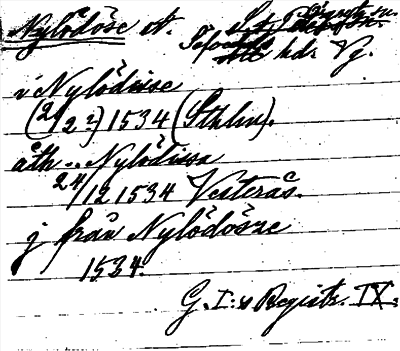 Nylödöse st.
hds. Vg.
i Nylödiise
(2/2 ?) 1534 (Sthlm).
åth .. Nylödissa
24/12 1534 Vesterås.
j från Nylödösze
1534.
G. I:s Registr. IX.